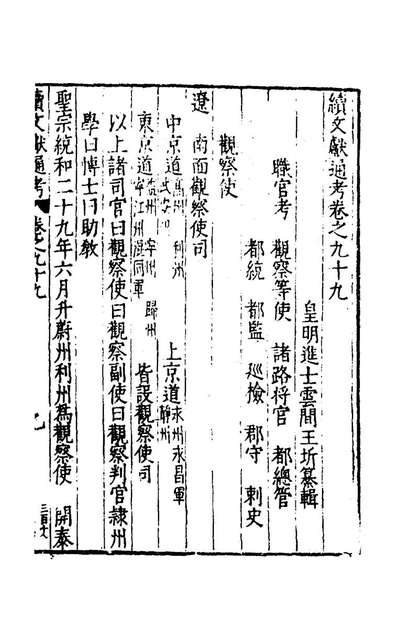 續文獻通考卷之九十九
皇明進士雲間王圻纂輯
職官考 觀察等使 諸路将官 都總管
都統 都監 廵檢 郡守 刺史
觀察使
遼 南面觀察使司
中京道高州 利州 武安州 上京道永州永昌軍 靜州
東京道益州 寧州 歸州 寧江州混同軍 皆設觀察使司
以上諸司官曰觀察使曰觀察副使曰觀察判官隸州
學曰博士曰助教
聖宗統和二十九年六月升蔚州利州爲觀察使 開泰
續文獻通考 卷之九十九